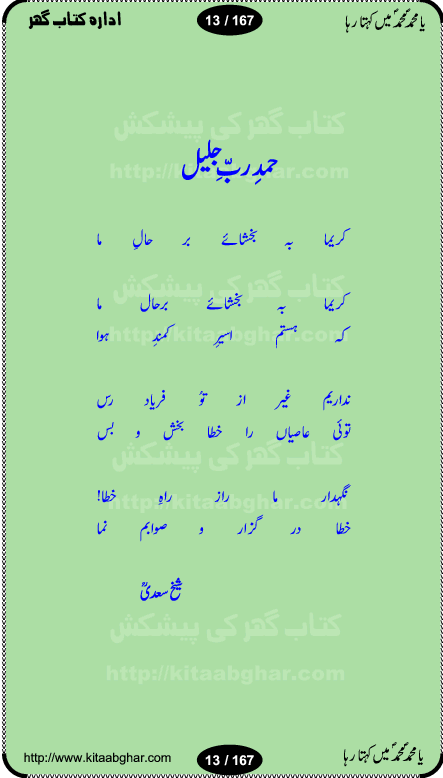 یا محمدؐ محمدؐ میں کہتا رہا 13 / 167 ادارہ کتاب گھر
کتاب گھر کی پیشکش
حمدِ ربِّ جلیل
http://kitaabghar.com
کریما بہ بخشائے بر حالِ ما
کتاب گھر کی پیشکش
کریما بہ بخشائے برحال ما
http://kitaabghar.com
کہ ہستم اسیرِ کمندِ ہوا
نداریم غیر از توُ فریاد رس
توئی عاصیاں را خطا بخش و بس
کتاب گھر کی پیشکش
نگہدار ما راز راہِ خطا!
http://kitaabghar.com
خطا در گزار و صوابم نما
شیخ سعدیؒ
کتاب گھر کی پیشکش
http://kitaabghar.com
یا محمدؐ محمدؐ میں کہتا رہا 13 / 167 http://www.kitaabghar.com